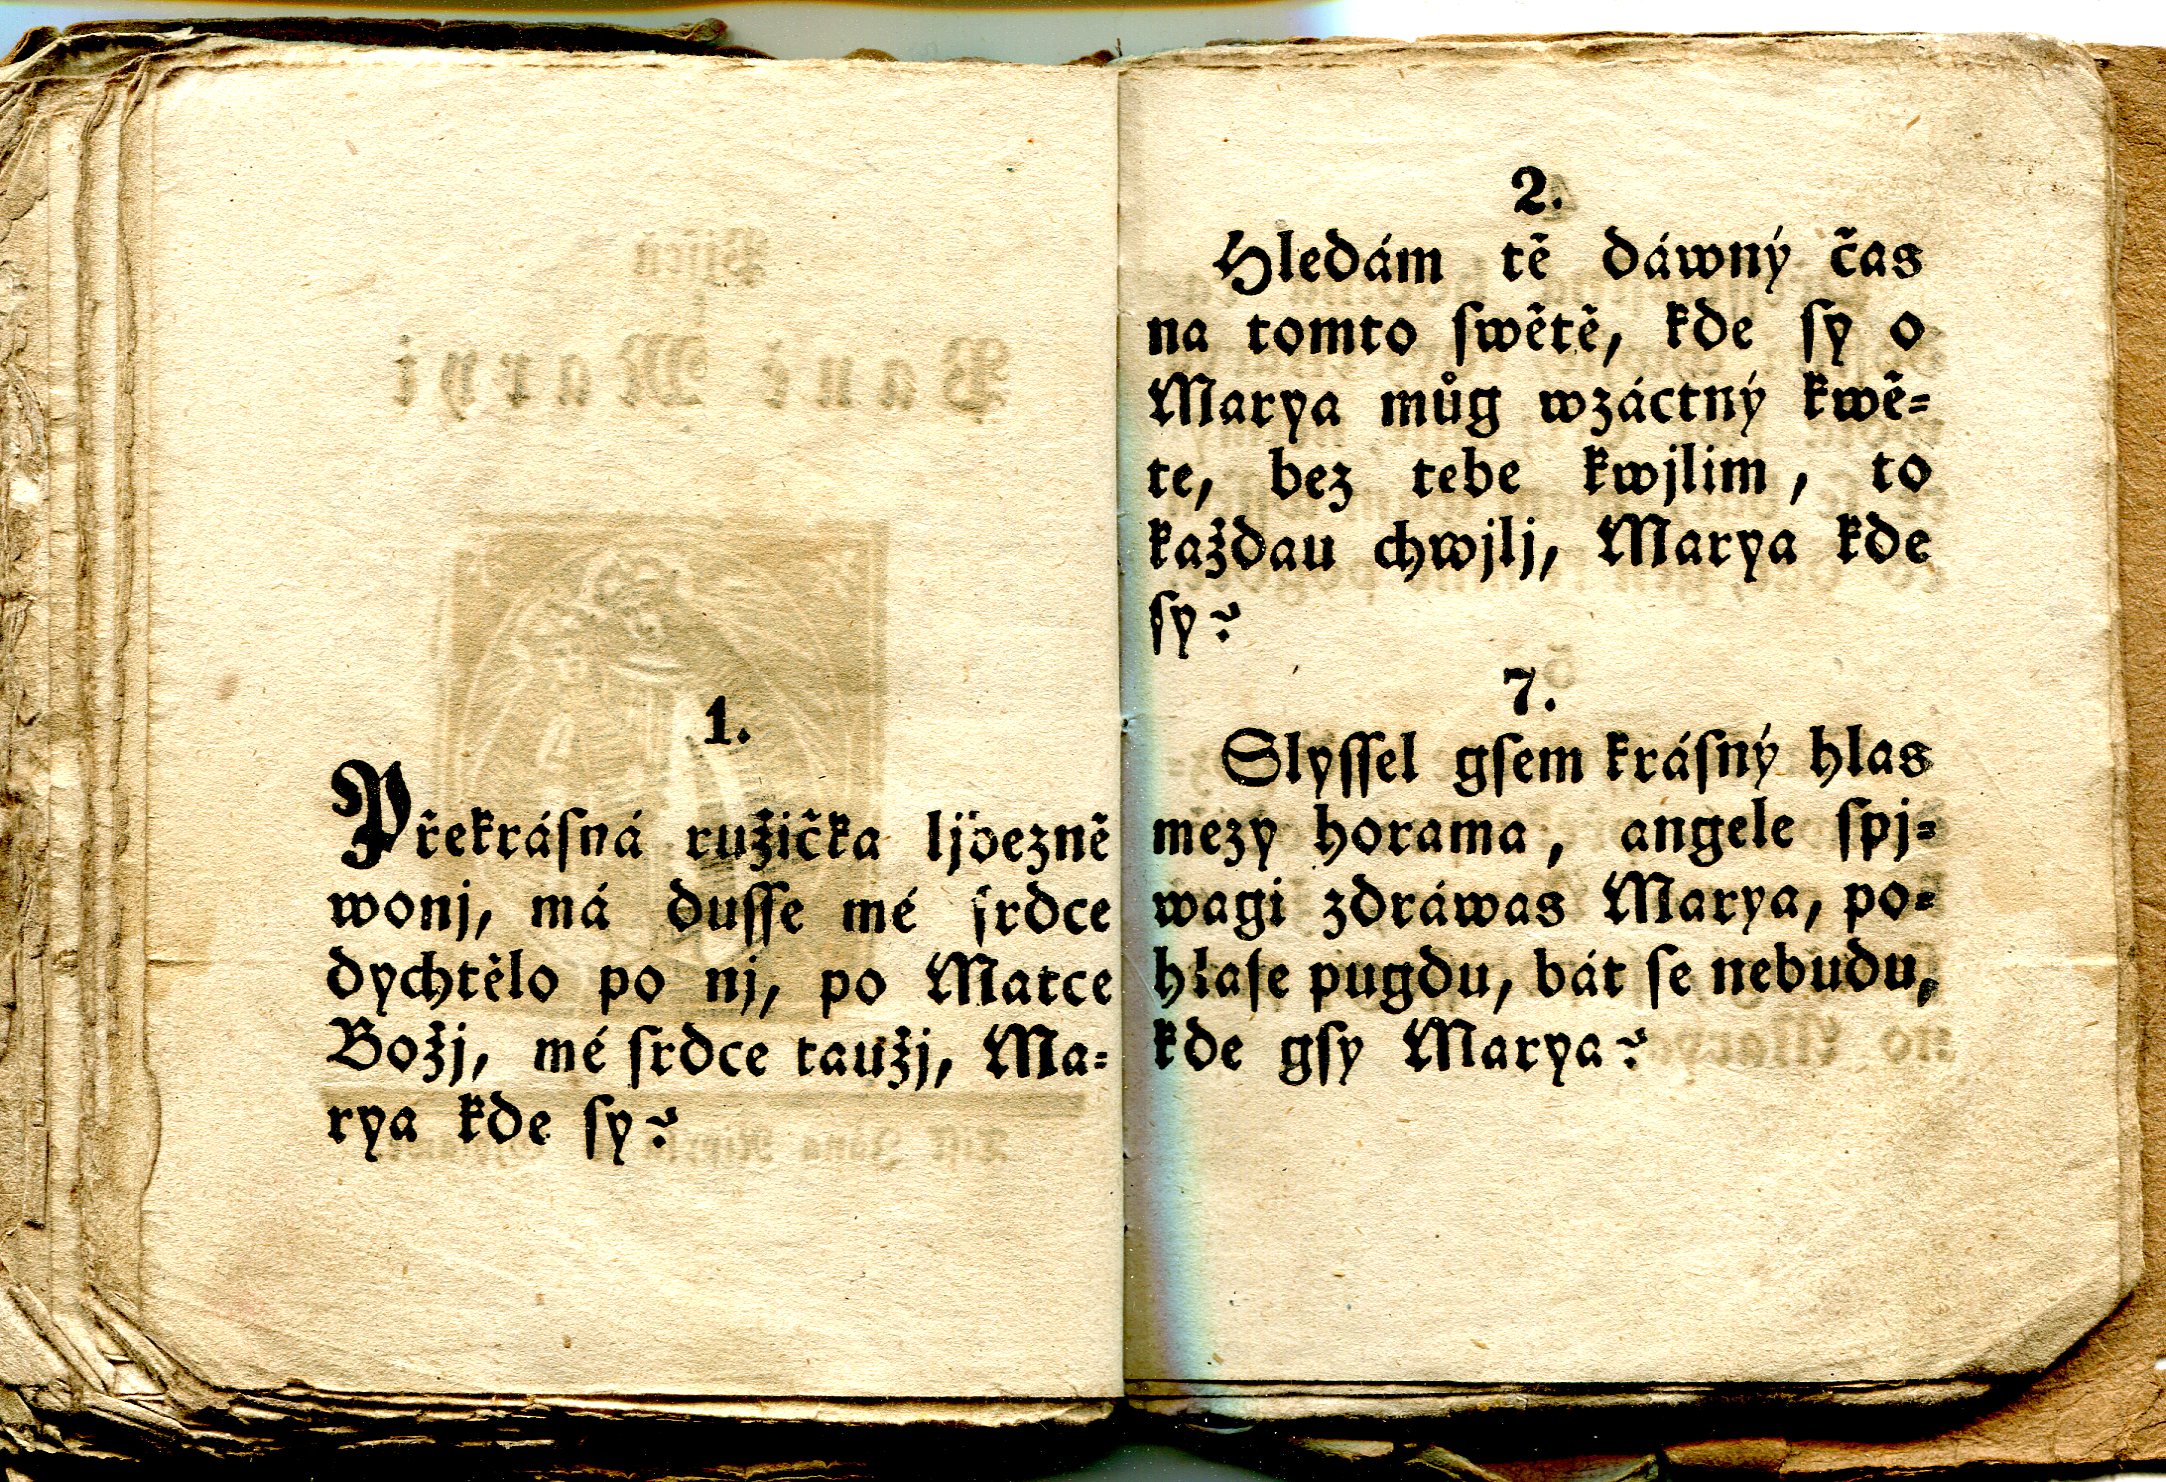 1.
Překrásná ružička ljbezně
wonj, má dusse mé srdce
dychtělo po nj, po Matce
Božj, mé srdce taužj, Ma-
rya kde sy?
2.
Hledám tě dáwný čas
na tomto swětě, kde sy o
Marya můg wzáctný kwě-
te, bez tebe kwjlim, to
každau chwjlj, Marya kde
sy?
7.
Slyssel gsem krásný hlas
mezy horama, angele spj-
wagi zdráwas Marya, po-
hlase pugdu, bát se nebudu,
kde gsy Marya?